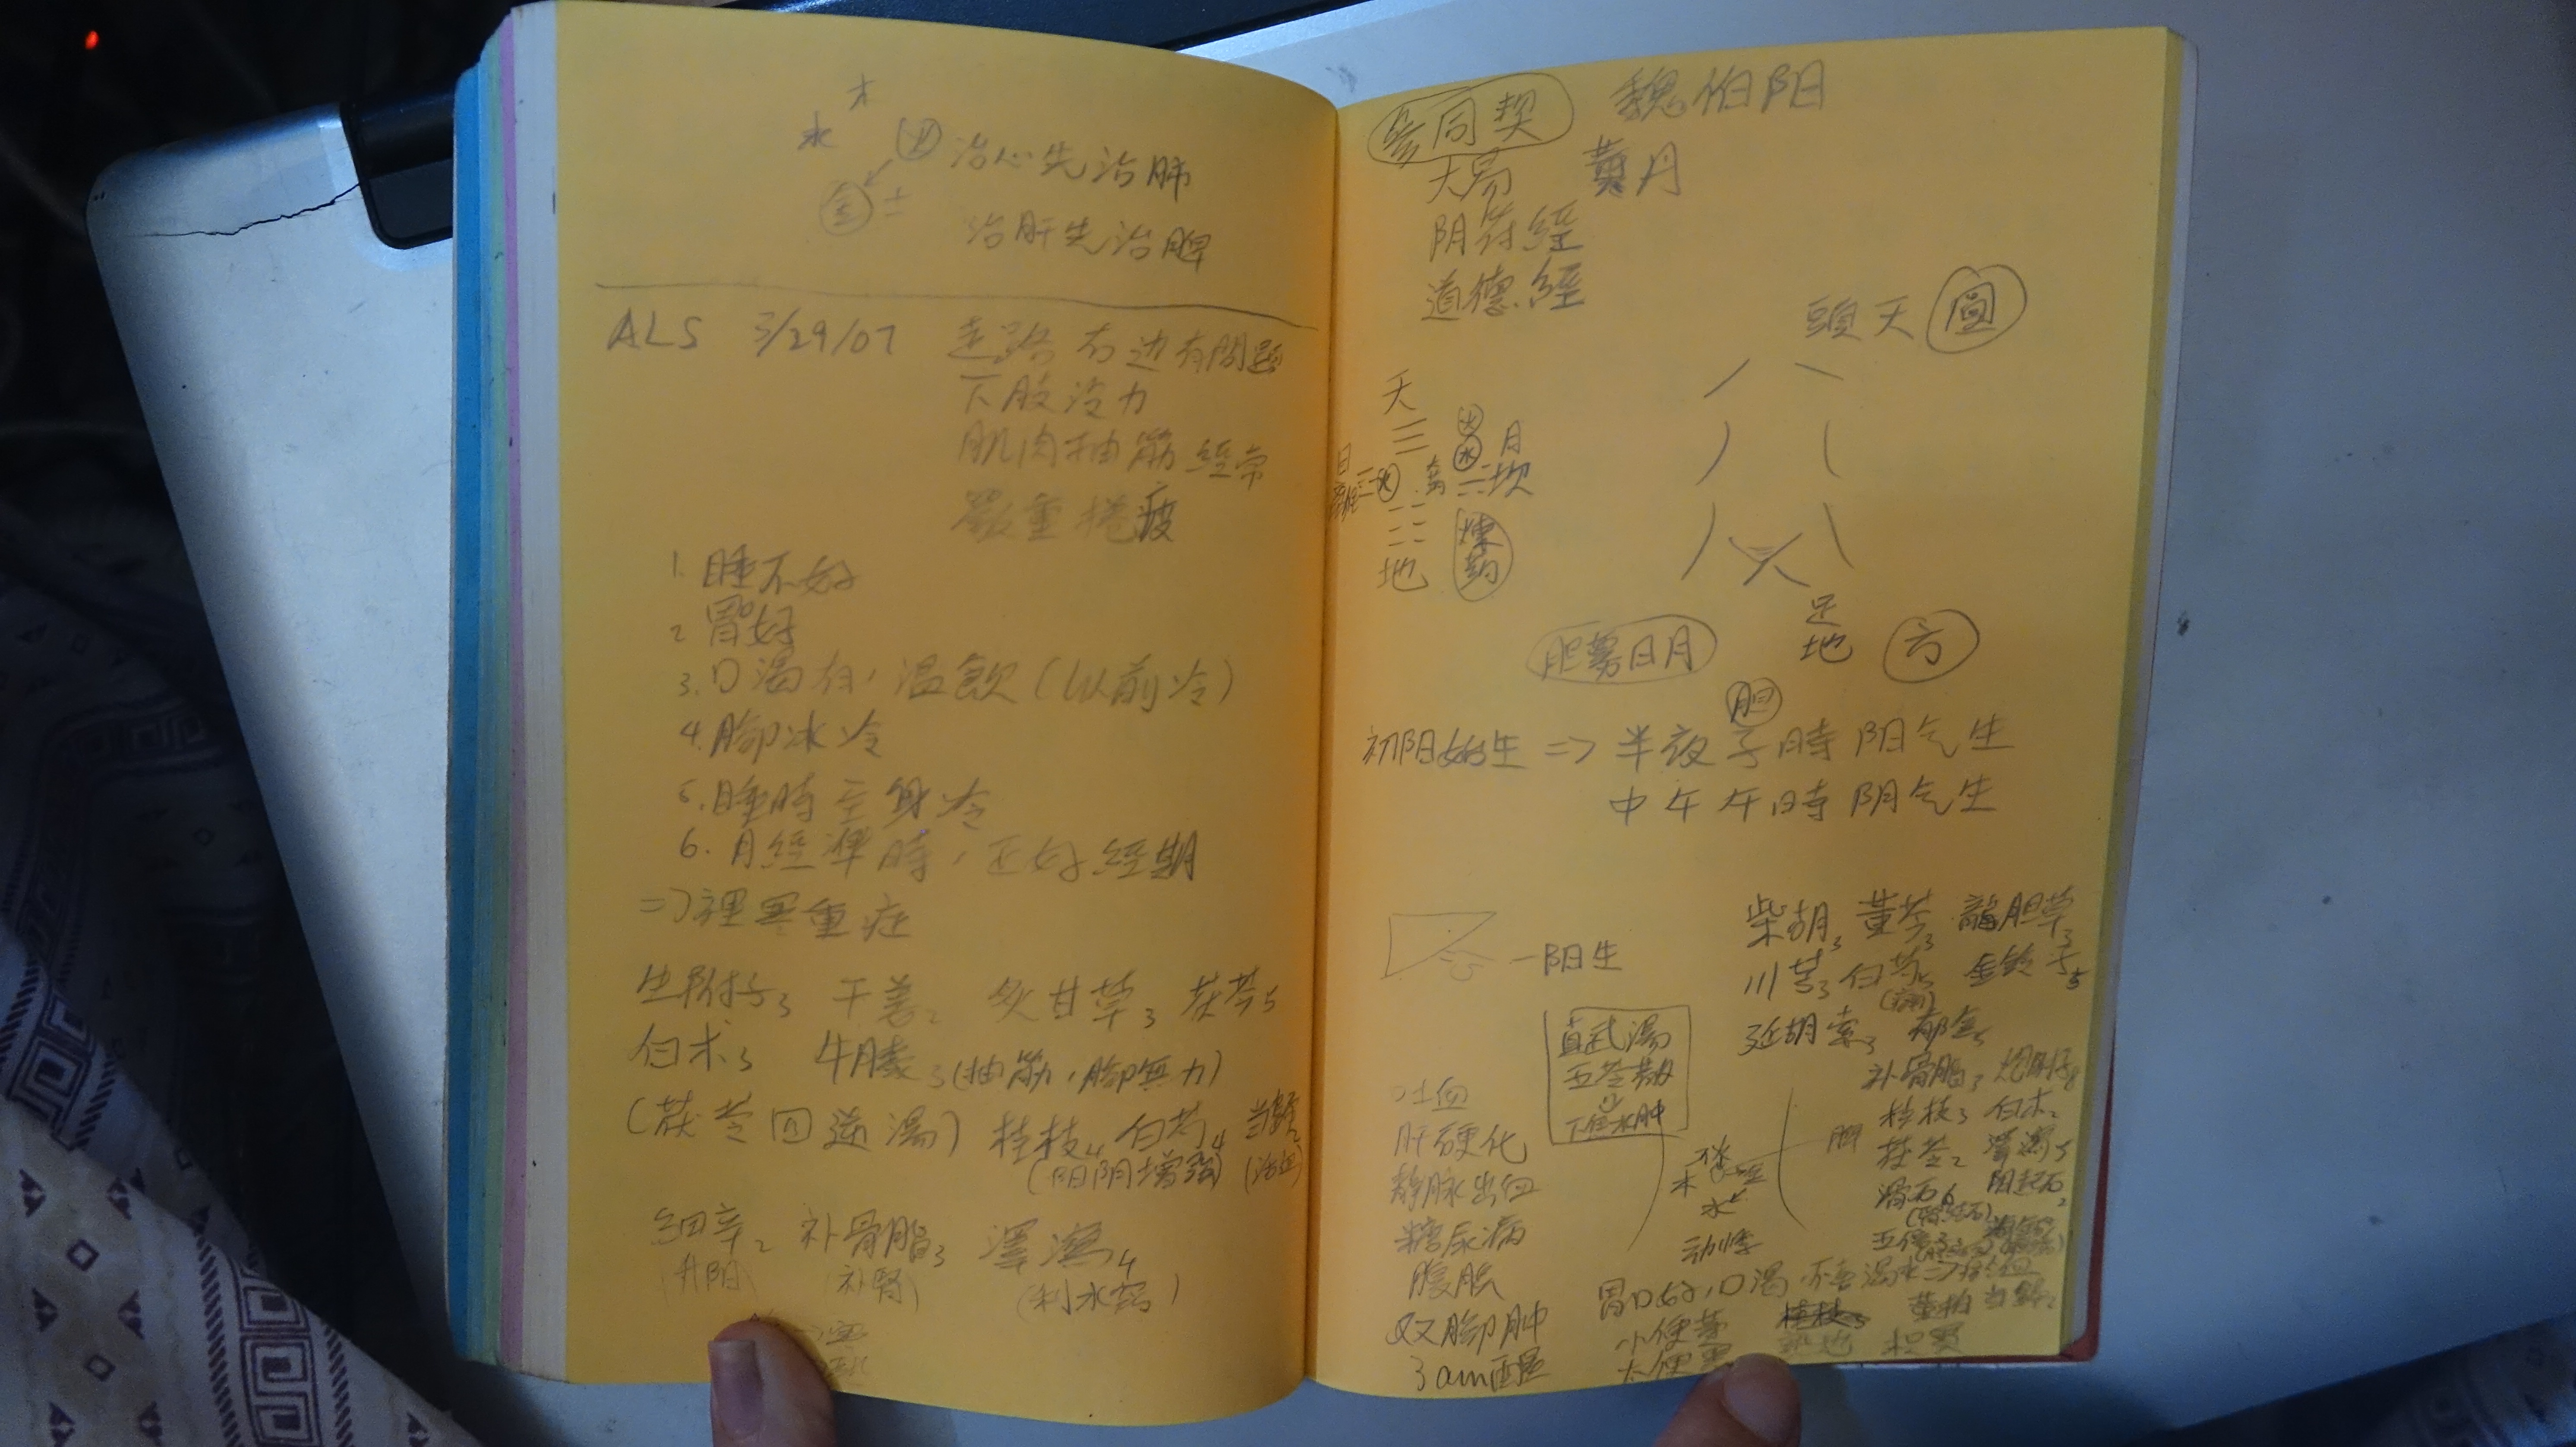 木
水 火 治心先治肺
金 土
治肝先治脾
ALS 3/29/07 走路右边有問題
下肢冷力
肌肉抽筋經常
嚴重倦疲
1. 睡不好
2 胃好
3. 口渴有，温飲（以前冷）
4. 腳冰冷
5. 睡時全身冷
6. 月經準時，正好經期
=> 裡寒重症
生附子3 干姜2 炙甘草3 茯苓5
白术3 牛膝3 (抽筋，腳無力)
(茯苓四逆湯) 桂枝4 白芍4 当歸2
(阳阴增強)
细辛2 补骨脂3 澤瀉4
(升阳) (补腎) (利水)
参同契 魏伯阳
大易 黄丹
阴符經
道德經
頭天 圓
天
火
水 月
日 火 坎
煉
药
地
足
地 方
胆募日月
胆
初阳始生 => 半夜子時阳气生
中午午時阴气生
一阳生
柴胡3 黄芩3 龍胆草3
川芎3 白芍5 金鈴子5
延胡索3 郁金5
真武湯
五苓散
下焦水肿
补骨脂3 炮附子8
桂枝3 白术2
茯苓2 澤瀉5
滑石6 阳起石2
吐血
肝硬化
静脉出血
糖尿病
腹脹
双腳肿
3am醒
木
水
动悸
胃口好，口渴，不喜渴水=>
小便黄
大便黑
桂枝5 黄柏 当歸2
枳实